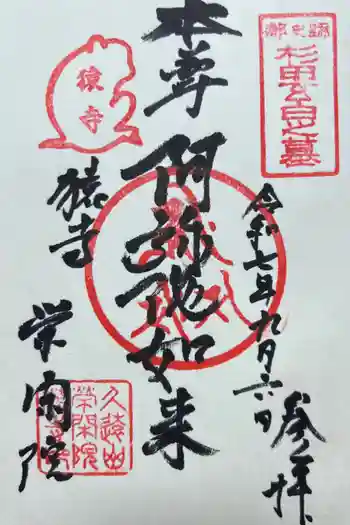 杉田玄白之墓
令和七年九月六日
参拝
本尊
阿弥陀如来
猿寺
猿寺
栄閑院
久遠山
榮閑院